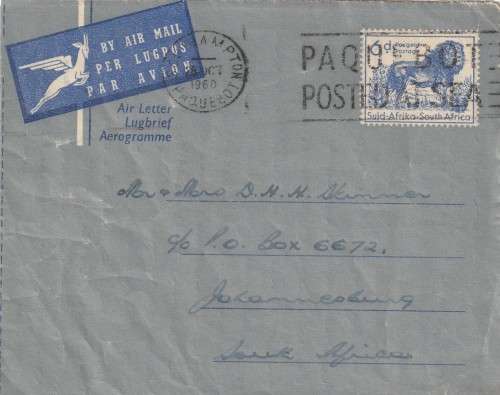 BY AIR MAIL
PER LUGPOS
PAR AVION
Air Letter
Lugbrief
Aerogramme
OCT
1960
PAQUEBOT
POSTED AT SEA
6d
Posgeld
Postage
Suid-Afrika·South Africa
Mr & Mrs D. H. H. Skinner
c/o P.O. Box 6672,
Johannesburg
South Africa